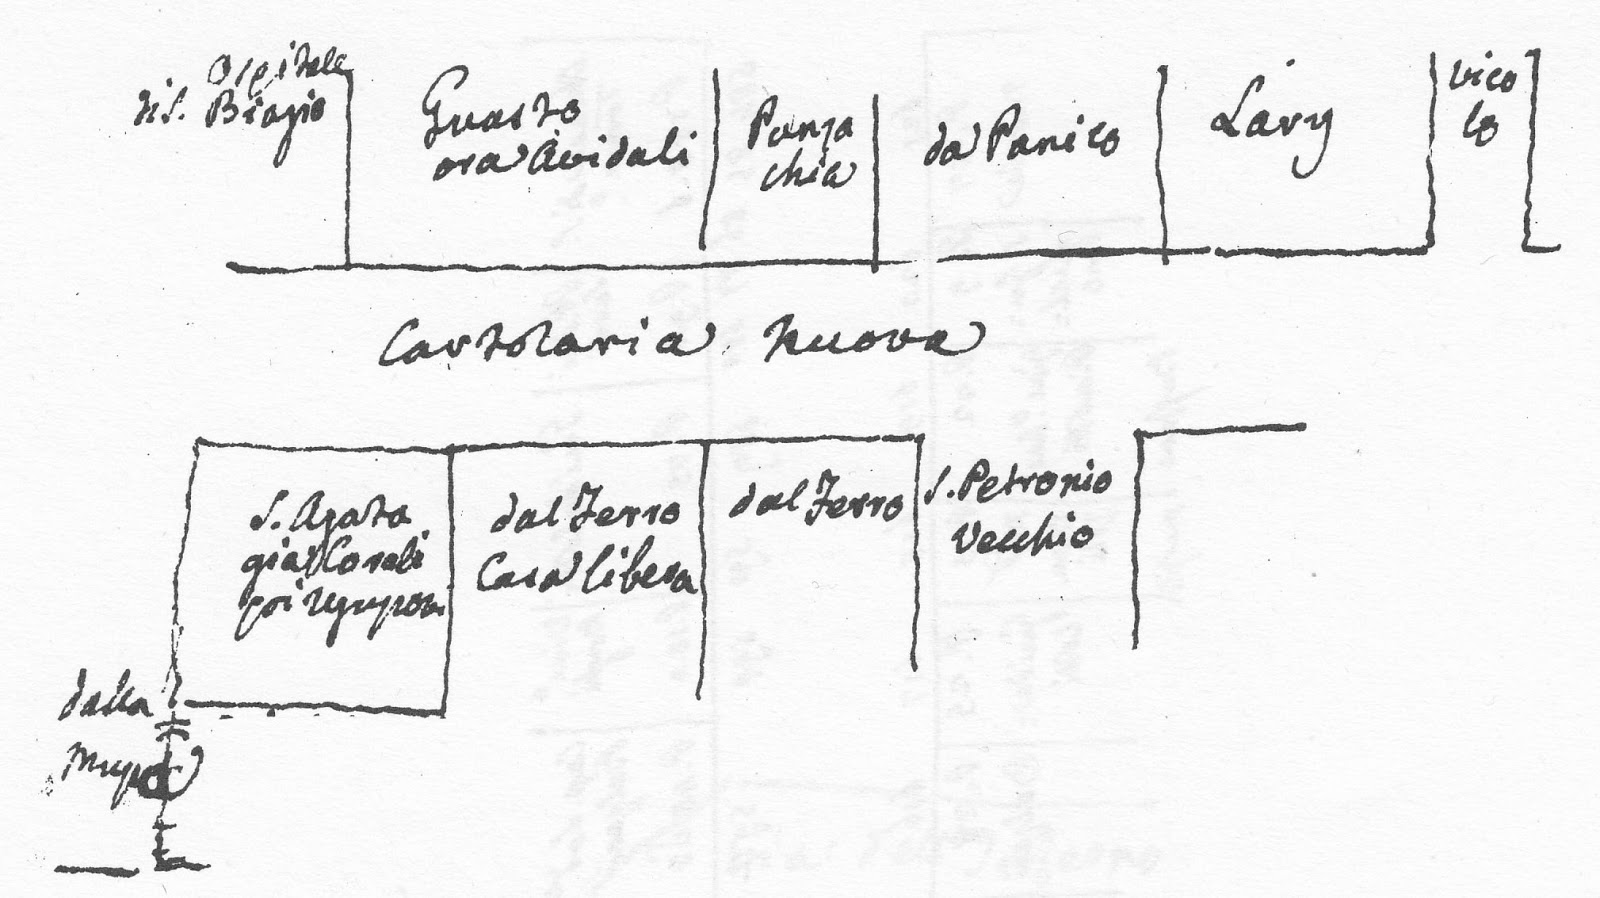 Ospitale
di S. Biagio
Guasto
ora Avidali
Panza
chia
da Panico
Lavy
vico
lo
Cartolaria nuova
S. Agata
già Corali
poi
dal Ferro
Casa libera
dal Ferro
S. Petronio
Vecchio
dalla